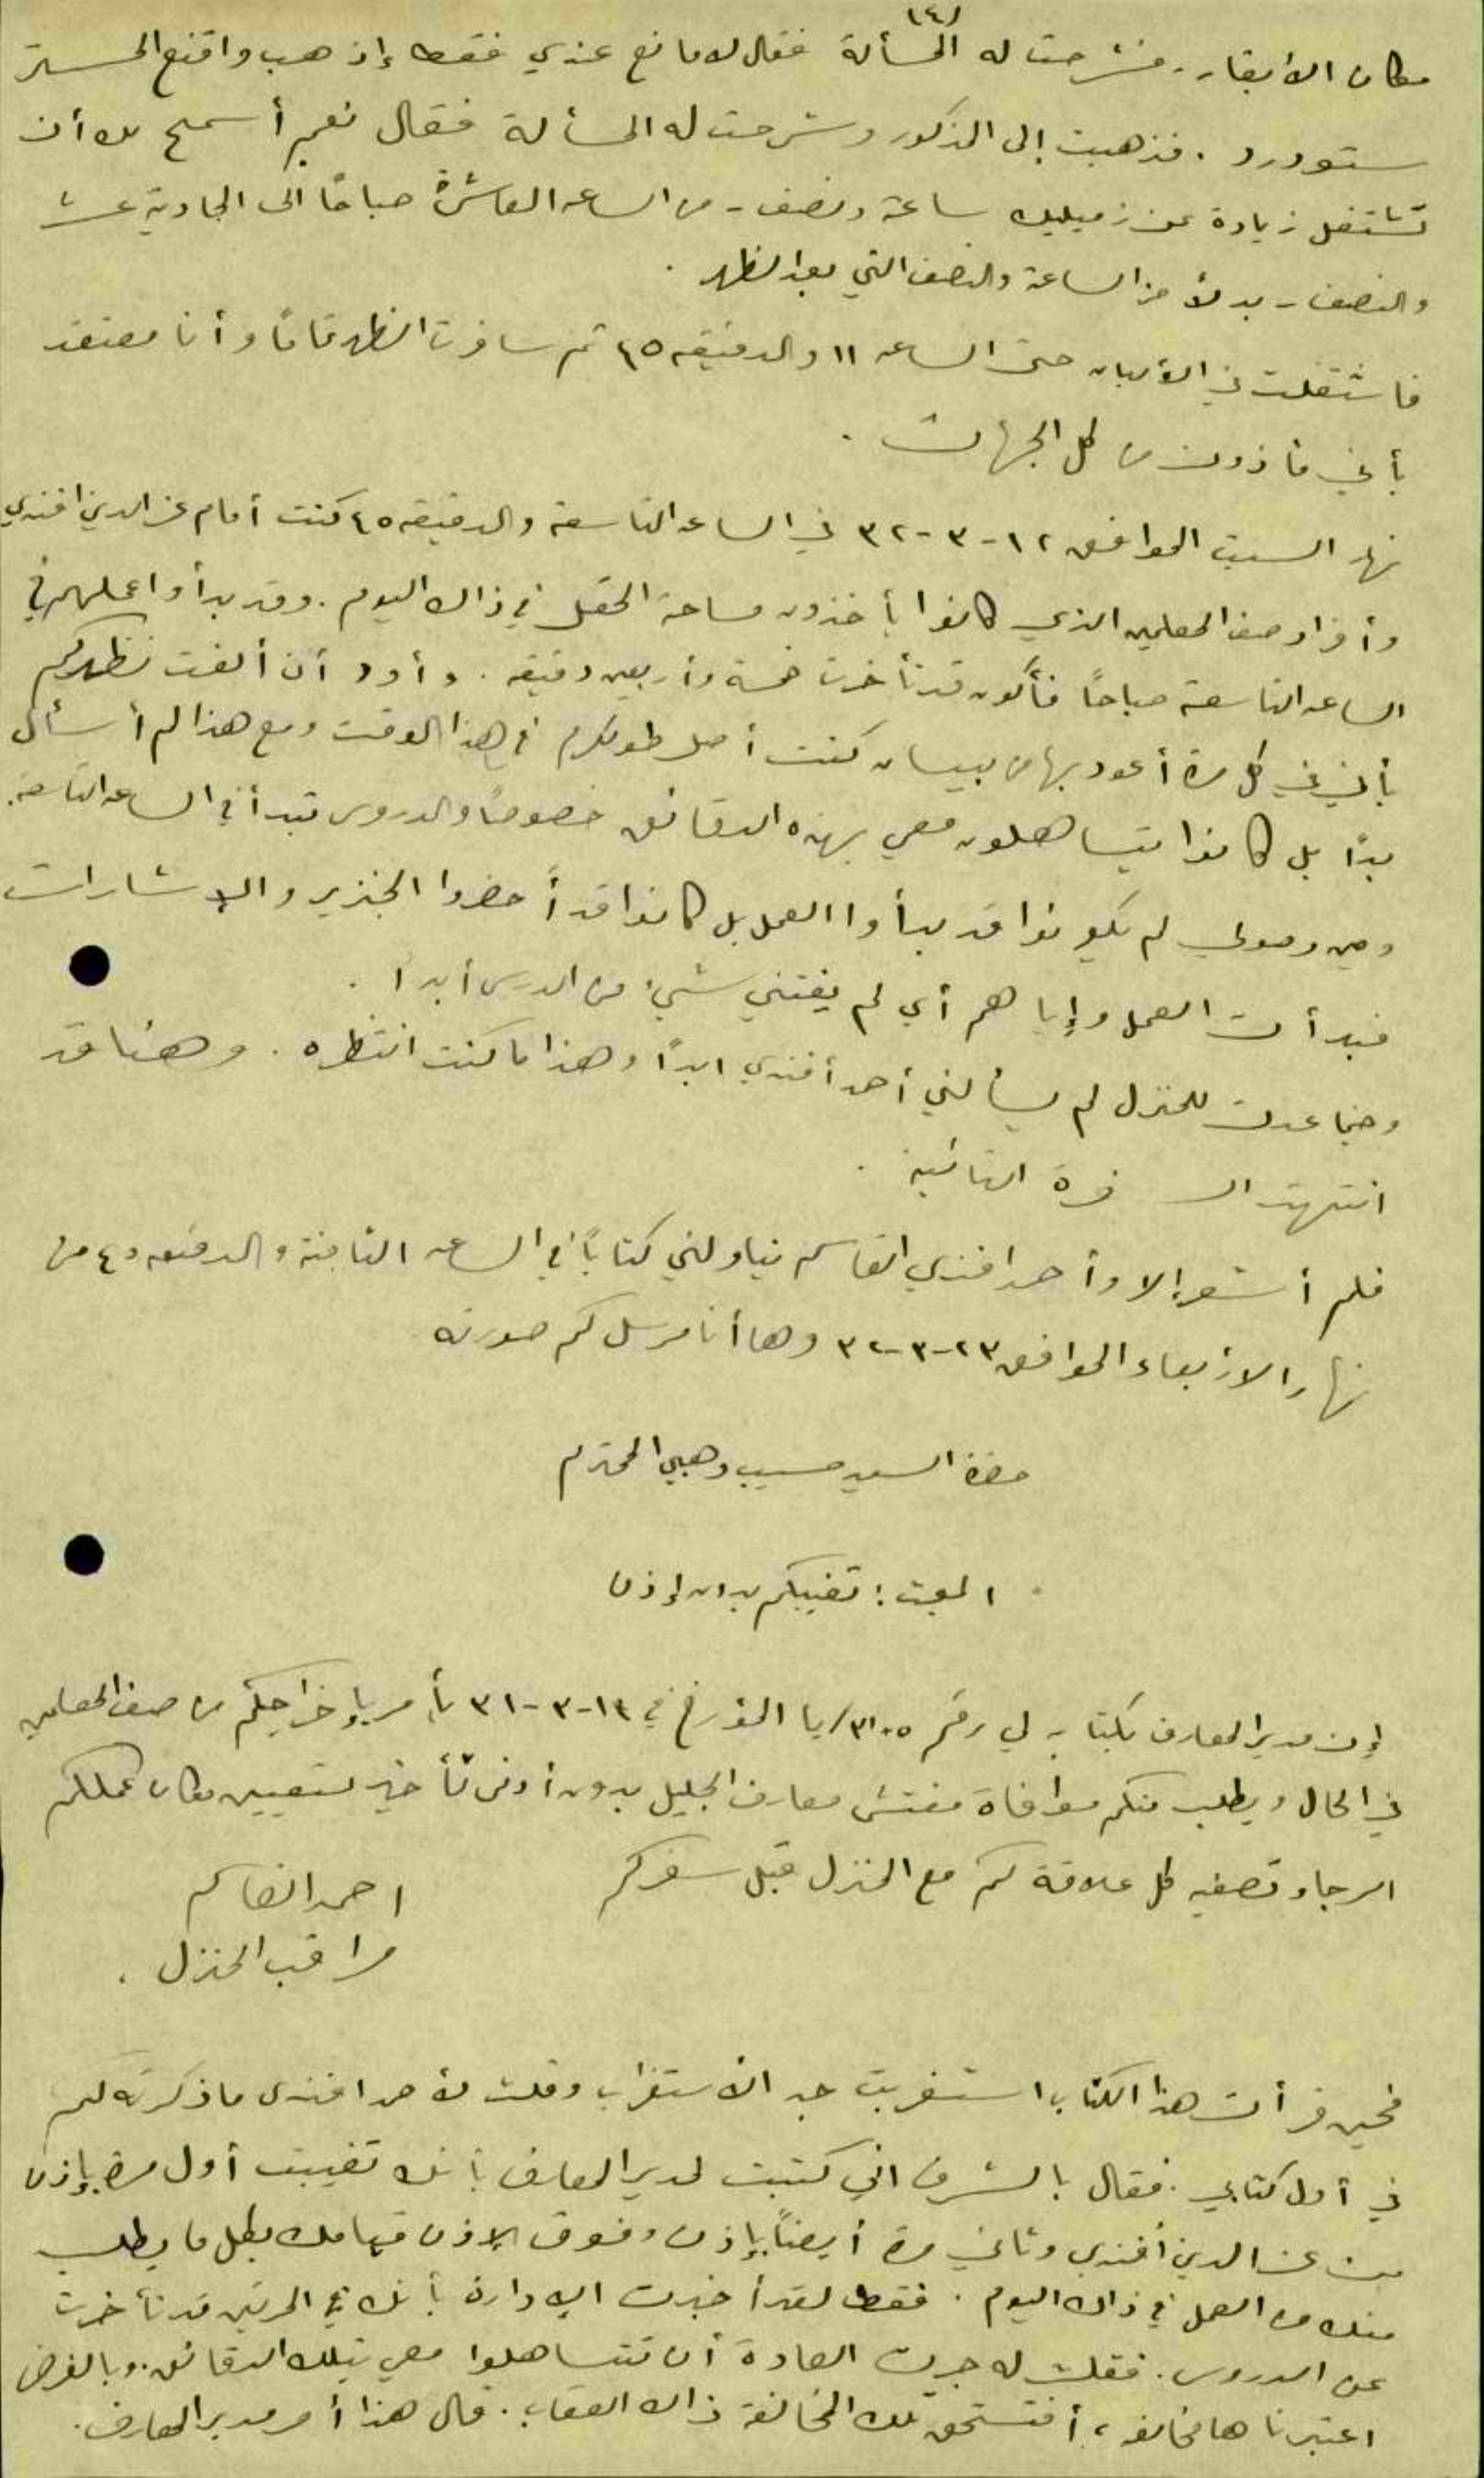 (٤)
مكان الأبقار. فشرحت له المسألة فقال لا مانع عندي فقط إذهب واقنع المستر
ستودرد. فذهبت إلى المذكور وشرحت له المسألة فقال نعم أسمح لك أن
تشتغل زيادة عن زميليك ساعة ونصف - من الساعه العاشرة صباحًا الى الحادية عشر
والنصف - بدلاً من الساعة والنصف التي بعد الظهر.
فاشتغلت في الألبان حتى الساعه ١١ والدقيقه ٤٥ ثم سافرت الظهر تمامًا وأنا معتقد
بأني مأذون من كل الجهات.
نهار السبت الموافق ١٢-٣-٣٢ في الساعه التاسعة والدقيقه ٤٥ كنت أمام عز الدين افندي
وأفراد صف المعلمين الذي كانوا يأخذون مساحة الحقل في ذاك اليوم. وقد بدأوا عملهم في
الساعه التاسعة صباحًا فأكون قد تأخرت خمسة وأربعين دقيقه. وأود أن ألفت نظركم
بأني في كل مرة أعود بها من بيسان كنت أصل طولكرم في هذا الوقت ومع هذا لم أسأل
بدًا بل كانوا يتساهلون معي بهذه الدقائق خصوصًا والدروس تبدأ في الساعه التاسعة.
وحين وصولي لم يكونوا قد بدأوا العمل بل كانوا قد أحضروا الجنزير والإشارات
فبدأت العمل وإياهم أي لم يفتني شيء من الدرس أبدًا.
وحينما عدت للمنزل لم يسألني أحمد أفندي ابدًا وهذا ما كنت انتظره. وهنا قد
انتهت السفرة الثانية.
فلم أشعر إلا وأحمد افندي القاسم يناولني كتابًا في الساعه الثامنة والدقيقه ٤٥ من
نهار الاربعاء الموافق ٢٣-٣-٣٢ وها أنا مرسل لكم صورته
حضرة السيد حسيب وهبي المحترم
المبحث: تغيبكم بدون إذن
إن مدير المعارف بكتابه لي رقم ٣١٠٥/يا المؤرخ في ١٩-٣-٣١ يأمر بإخراجكم من صف المعلمين
في الحال ويطلب منكم موافاة مفتش معارف الجليل بدون أدنى تأخير لتعيين مكان عملكم
الرجاء تصفية كل علاقة لكم مع المنزل قبل سفركم
احمد القاسم
مراقب المنزل.
فحين قرأت هذا الكتاب استغربت جد الأستغراب وقلت لأحمد افندي ما ذكرته لكم
في أول كتابي. فقال بالشرف اني كتبت لمدير المعارف بأنك تغيبت أول مرة بإذن
من عز الدين أفندي وثاني مرة أيضًا بإذن وفوق الإذن قيامك بكل ما يطلب
منك من العمل في ذاك اليوم. فقط لقد أخبرت الإدارة بأنك في المرتين قد تأخرت
عن الدروس. فقلت له جرت العادة أن تتساهلوا معي بتلك الدقائق. وبالفرض
اعتبرناها مخالفه، أفتستحق تلك المخالفة ذاك العقاب. قال هذا أمر مدير المعارف.